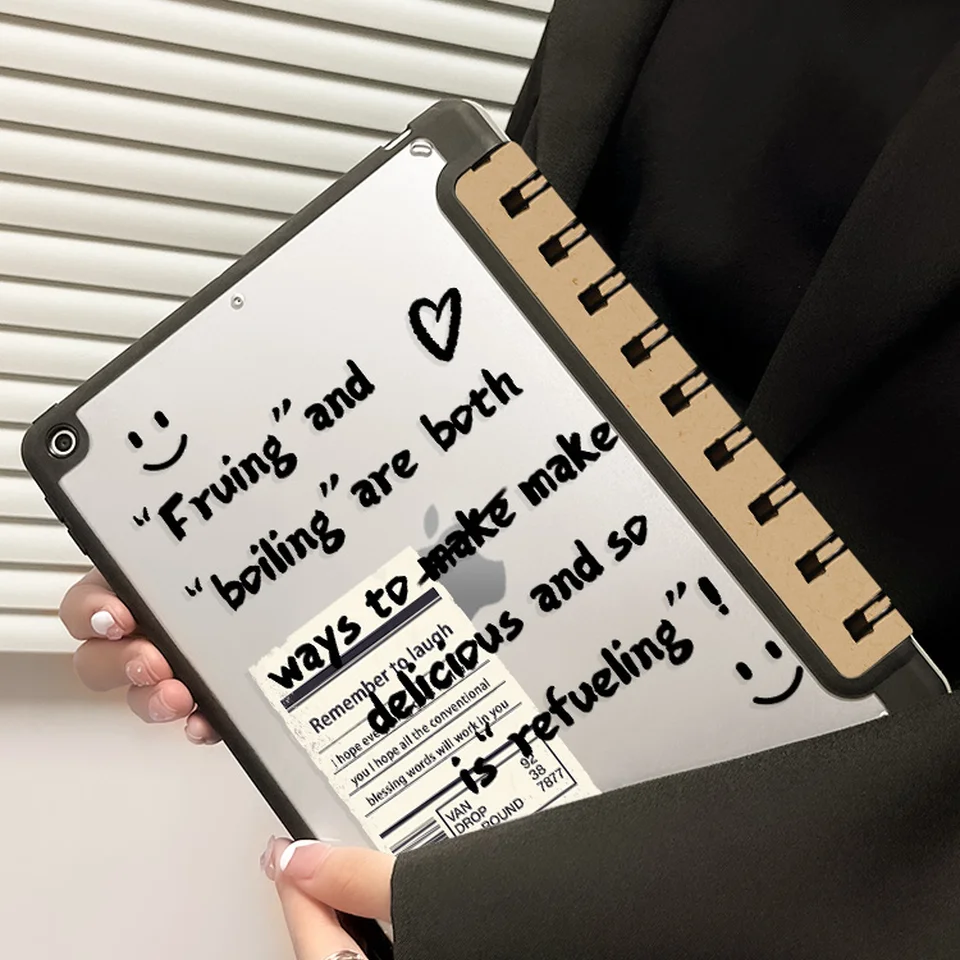 "Fruing" and
"boiling" are both
ways to make make
delicious and so
is "refueling"!
Remember to laugh
I hope
you I hope all the conventional
blessing words will work in you
VAN 92
DROP 38
7877